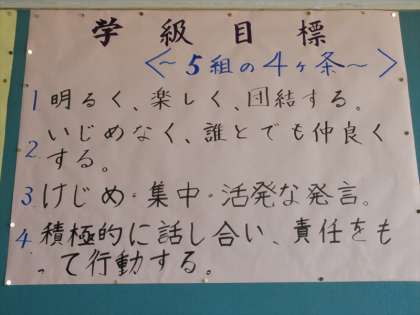 学級目標
<~5組の4ヶ条~>
1 明るく、楽しく、団結する。
2 いじめなく、誰とでも仲良く
する。
3 けじめ・集中・活発な発言。
4 積極的に話し合い、責任をも
って行動する。